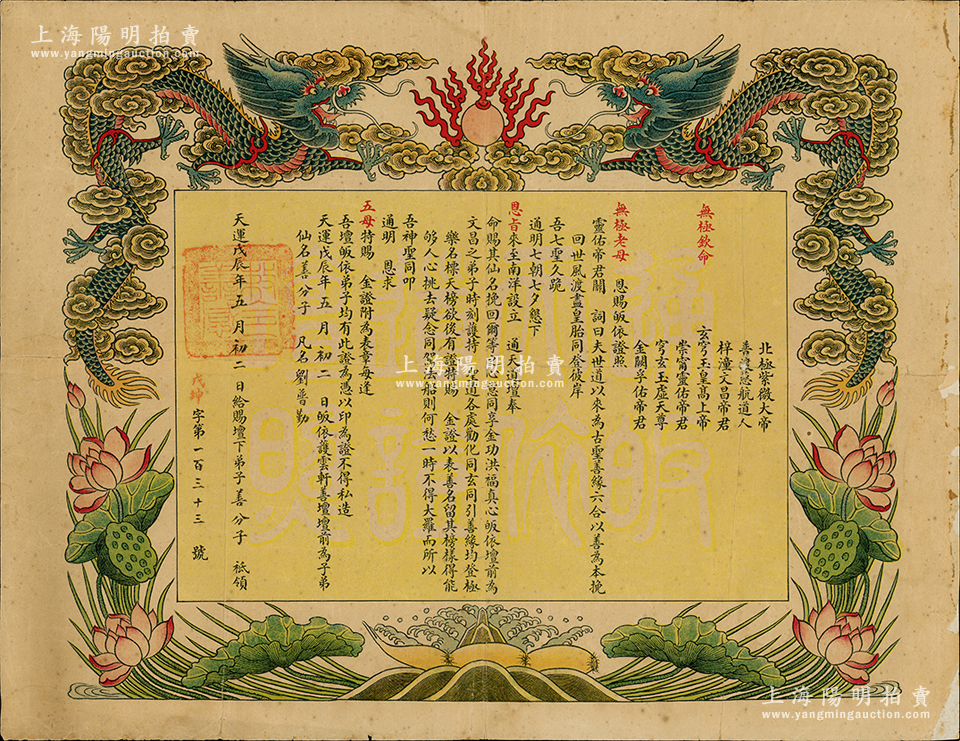 上海陽明拍賣
www.yangmingauction.com
上海陽明拍賣
www.yangmingauction.com
無極欽命
北極紫微大帝
普渡慈航道人
梓潼文昌帝君
玄穹玉皇高上帝
崇甯靈佑帝君
穹玄玉虛天尊
金闕孚佑帝君
無極老母 恩賜皈依證照
靈佑帝君關 詞曰夫世道以來為古聖善緣六合以善為本挽
回世風渡盡皇胎同登彼岸
吾七聖久跪
通明七朝七夕懇下
恩旨來至南洋設立 通天道壇奉
命賜其仙名挽回爾等 同享金功洪福真心皈依壇前為
文昌之弟子時刻護持 道各處勸化同玄同引善緣均登極
樂名標天榜欲後有證 賜 金證以表善名留其榜樣得能
够人心挑去疑念同駕 船則何愁一時不得大羅而所以
吾神聖同叩
通明 恩求
五母特賜 金證附為表章每逢
吾壇皈依弟子均有此證為憑以印為證不得私造
天運戊辰年五月初二日皈依護雲軒善壇壇前為子弟
仙名善分子 凡名劉普勤
天運戊辰年五月初二日給賜壇下弟子善分子 祇領
戊坤字第一百三十三號